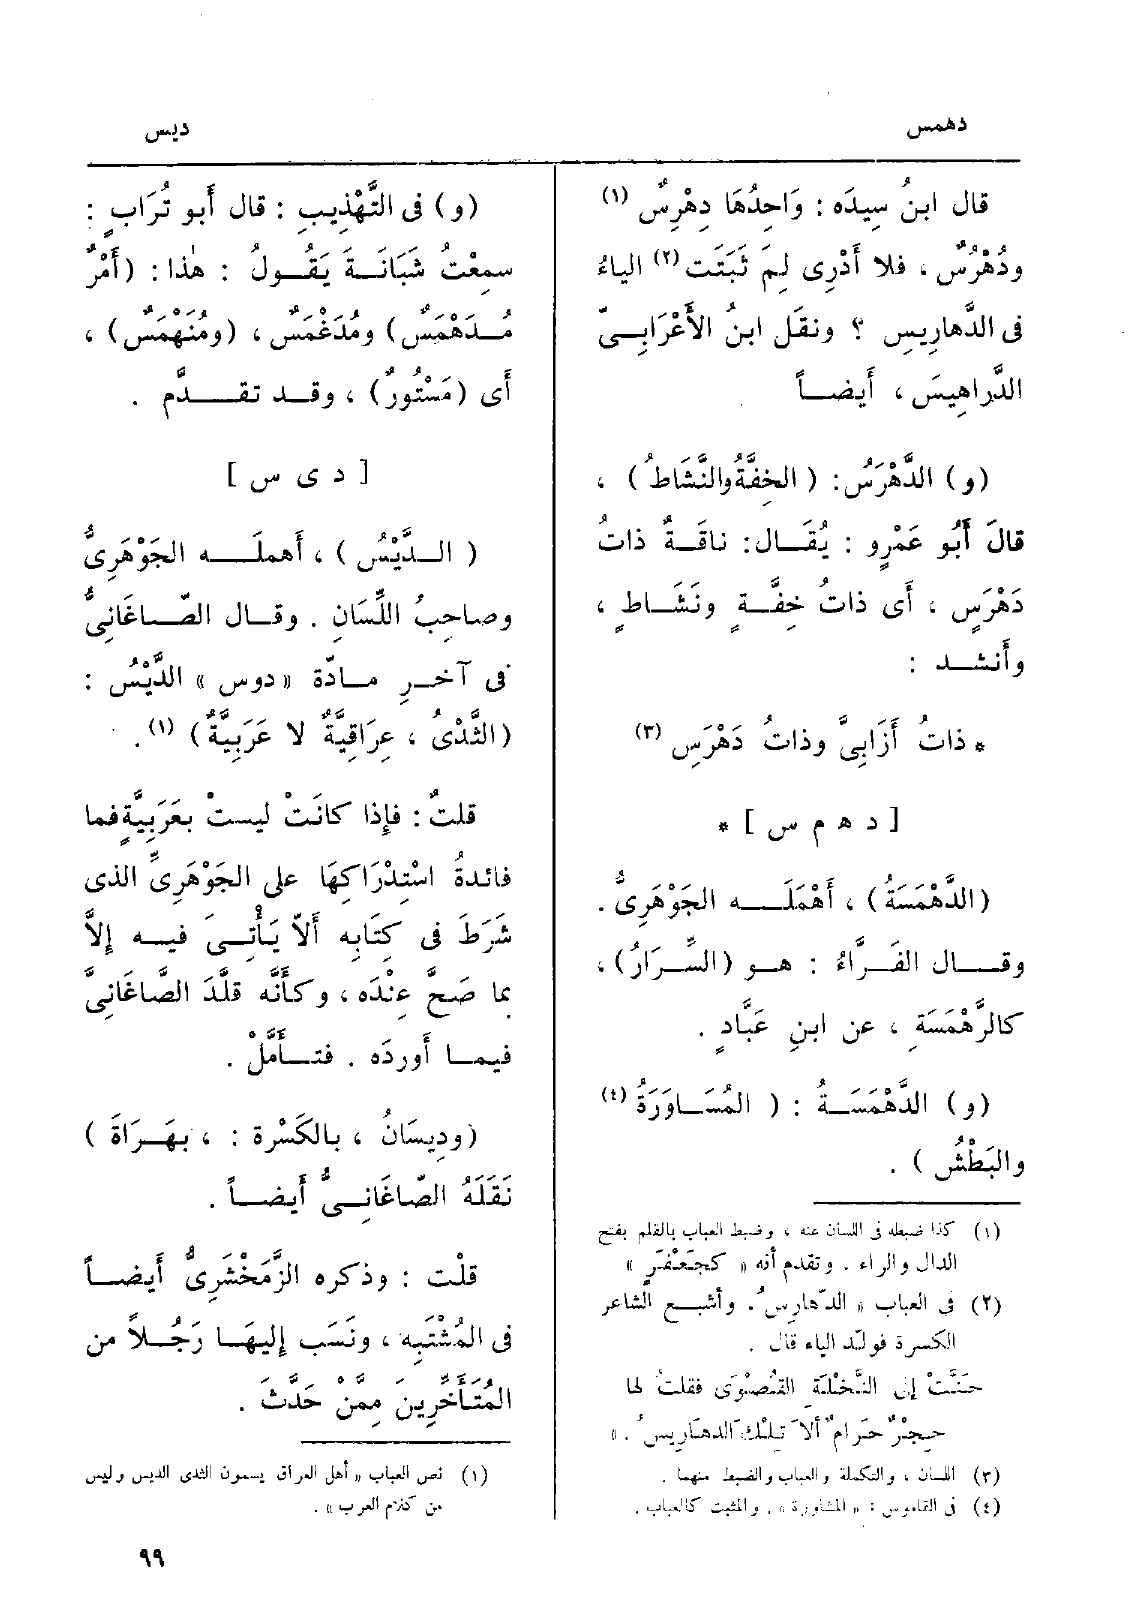 دهمس
ديس
قال ابنُ سِيدَه : وَاحِدُهَا دِهْرِسٌ (١)
ودُهْرُسٌ ، فلا أَدْرِى لِمَ ثَبَتَت (٢) الياءُ
فى الدَّهارِيسِ ؟ ونقَل ابنُ الأَعْرَابِــىّ
الدَّراهِيسَ ، أَيضــاً
(و) الدَّهْرَسُ : ( الخِفَّةُ والنَّشَاطُ ) ،
قالَ أَبُو عَمْرٍو : يُقَــال : ناقَــةٌ ذاتُ
دَهْرَسٍ ، أَى ذاتُ خِفَّــةٍ ونَشَــاطٍ ،
وأَنشــد :
* ذاتُ أَزَابِىَّ وذاتُ دَهْرَسِ (٣)
[ د ه م س ] *
(الدَّهْمَسَةُ) ، أَهْمَلَــه الجَوْهَرِىُّ .
وقــال الفَــرَّاءُ : هــو (السِّــرَارُ) ،
كالرَّهْمَسَةِ ، عن ابنِ عَبَّادٍ .
(و) الدَّهْمَسَــةُ : ( المُسَــاوَرَةُ (٤)
والبَطْشُ ) .
(١) كذا ضبطه فى اللسان عنه ، وضبط العباب بالقلم بفتح
الدال والراء . وتقدم أنه « كجَعْفَرٍ »
(٢) فى العباب « الدَّهارِسُ . وأشبــع الشاعر
الكسرة فولّد الياء قال .
حَنَّتْ إلى النَّخْلَةِ القُصْوَى فقلتُ لها
حِجْرٌ حَرَامٌ ألاَ تِلْكَ الدهَارِيسُ . »
(٣) اللسان ، والتكملة والعباب والضبط منهما .
(٤) فى القاموس : « المشاورة » . والمثبت كالعباب .
(و) فى التَّهْذِيبِ : قال أَبو تُرَابٍ :
سمِعْتُ شَبَانَــةَ يَقُــولُ : هٰذا : (أَمْرٌ
مُــدَهْمَسٌ) ومُدَغْمَسٌ ، (ومُنَهْمَسٌ) ،
أَى (مَسْتُورٌ) ، وقــد تقــدَّم .
[ د ى س ]
( الــدَّيْسُ ) ، أَهملَــه الجَوْهَرِىُّ
وصاحِبُ اللِّسَانِ . وقــال الصّــاغَانِىُّ
فى آخــرِ مــادّة « دوس » الدَّيْسُ :
(الثَّدْىُ ، عِرَاقِيَّةٌ لا عَرَبِيَّةٌ) (١) .
قلتُ : فإِذا كانَتْ ليستْ بعَرَبِيَّةٍ فما
فائدةُ اسْتِدْرَاكِهَا على الجَوْهَرِىِّ الذى
شَرَطَ فى كِتَابِه أَلاّ يَأْتِــىَ فيــه إِلاَّ
بما صَحَّ عِنْدَه ، وكأَنَّه قلَّدَ الصّاغَانِىَّ
فيمــا أَوردَه . فتــأَمَّلْ .
(ودِيسَانُ ، بالكَسْرة : ، بهَــرَاةَ )
نَقَلَهُ الصّاغَانِــىُّ أَيضــاً .
قلْت : وذكره الزَّمَخْشَرِىُّ أَيضــاً
فى المُشْتَبِه ، ونَسَب إِليهَــا رَجُــلاً من
المُتَأَخِّرِين مِمَّنْ حَدَّثَ .
(١) نص العباب « أهل العراق يسمون الثدى الديس وليس
من كلام العرب » .
٩٩